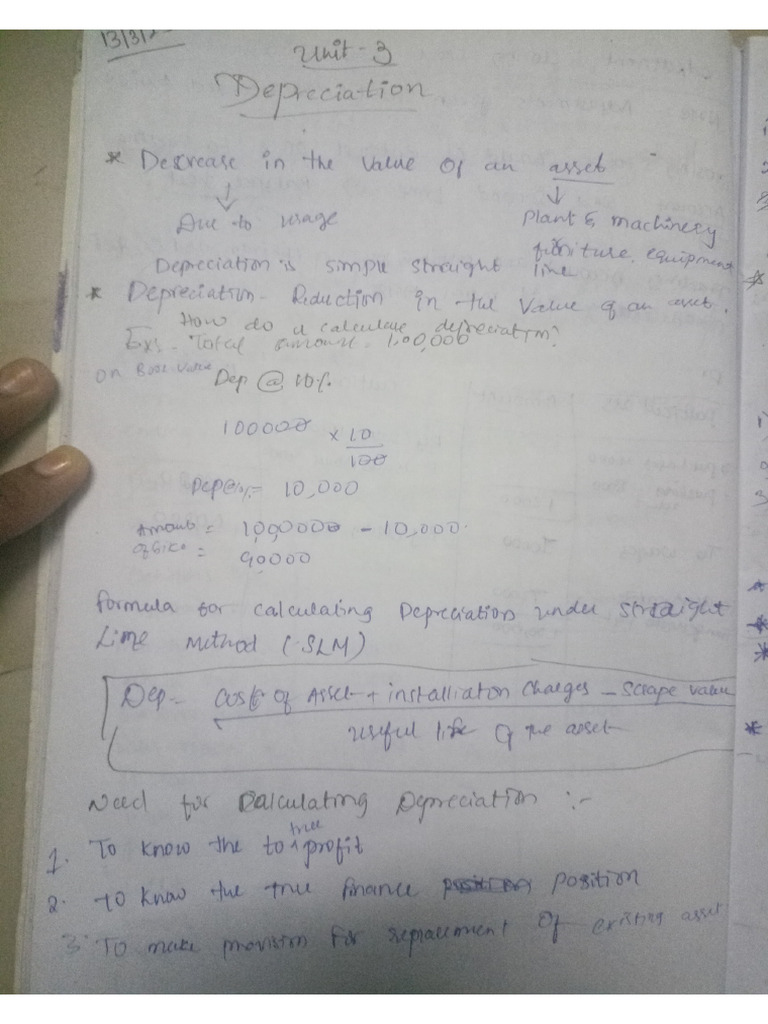 13/3/2
Unit - 3
Depreciation
* Decrease in the value of an asset
Due to usage
Plant & machinery
furniture, equipment
Depreciation is simple straight line
* Depreciation - Reduction in the value of an asset.
How do u calculate depreciation?
Ex:- Total amount - 1,00,000
on Book value
Dep @ 10%
100000 x 10
100
Dep@10%= 10,000
Amount = 1000000 - 10,000
= 90000
Formula for calculating Depreciation under straight
Line Method (SLM)
Dep = Cost of Asset + installiaton charges - scrape value
useful life of the asset
Need for calculating Depreciation :-
1. To know the to true profit
2. to know the true finance position
3. To make provision for replacement of existing asset